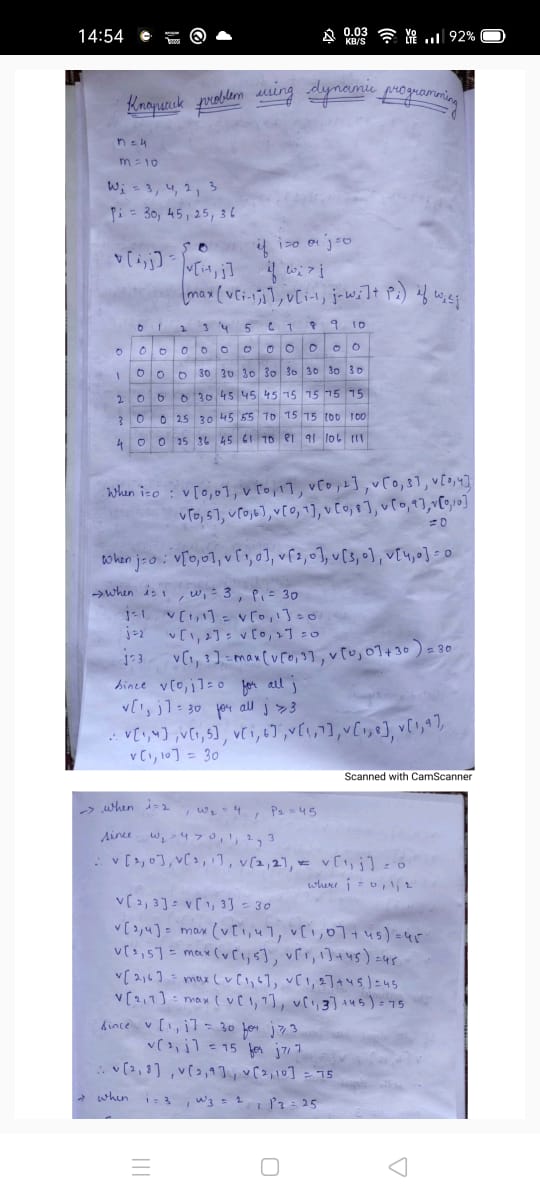 14:54
0.03 KB/S
Vo LTE
92%
Knapsack problem using dynamic programming
n = 4
m = 10
Wi = 3, 4, 2, 3
Pi = 30, 45, 25, 36
v[i,j] = { 0 if i=0 or j=0
v[i-1, j] if wi > j
max(v[i-1,j], v[i-1, j-wi] + Pi) if wi ≤ j
0 1 2 3 4 5 6 7 8 9 10
0 0 0 0 0 0 0 0 0 0 0 0
1 0 0 0 30 30 30 30 30 30 30 30
2 0 0 0 30 45 45 45 75 75 75 75
3 0 0 25 30 45 55 70 75 75 100 100
4 0 0 25 36 45 61 70 81 91 106 111
When i=0 : v[0,0], v[0,1], v[0,2], v[0,3], v[0,4]
v[0,5], v[0,6], v[0,7], v[0,8], v[0,9], v[0,10]
=0
When j=0 : v[0,0], v[1,0], v[2,0], v[3,0], v[4,0] = 0
→ When i=1 , w1 = 3 , P1 = 30
j=1 v[1,1] = v[0,1] = 0
j=2 v[1,2] = v[0,2] = 0
j=3 v[1,3] = max(v[0,3], v[0,0]+30) = 30
Since v[0,j]=0 for all j
v[1,j] = 30 for all j ≥3
∴ v[1,4], v[1,5], v[1,6], v[1,7], v[1,8], v[1,9],
v[1,10] = 30
Scanned with CamScanner
→ when i=2 , w2 = 4 , P2 = 45
since w2 = 4 > 0, 1, 2, 3
∴ v[2,0], v[2,1], v[2,2], = v[1,j] = 0
where j = 0,1,2
v[2,3] = v[1,3] = 30
v[2,4] = max(v[1,4], v[1,0]+45) = 45
v[2,5] = max(v[1,5], v[1,1]+45) = 45
v[2,6] = max(v[1,6], v[1,2]+45) = 45
v[2,7] = max(v[1,7], v[1,3]+45) = 75
Since v[1,j] = 30 for j≥3
v[2,j] = 75 for j≥7
∴ v[2,8], v[2,9], v[2,10] = 75
→ when i = 3 , w3 = 2 , P3 = 25